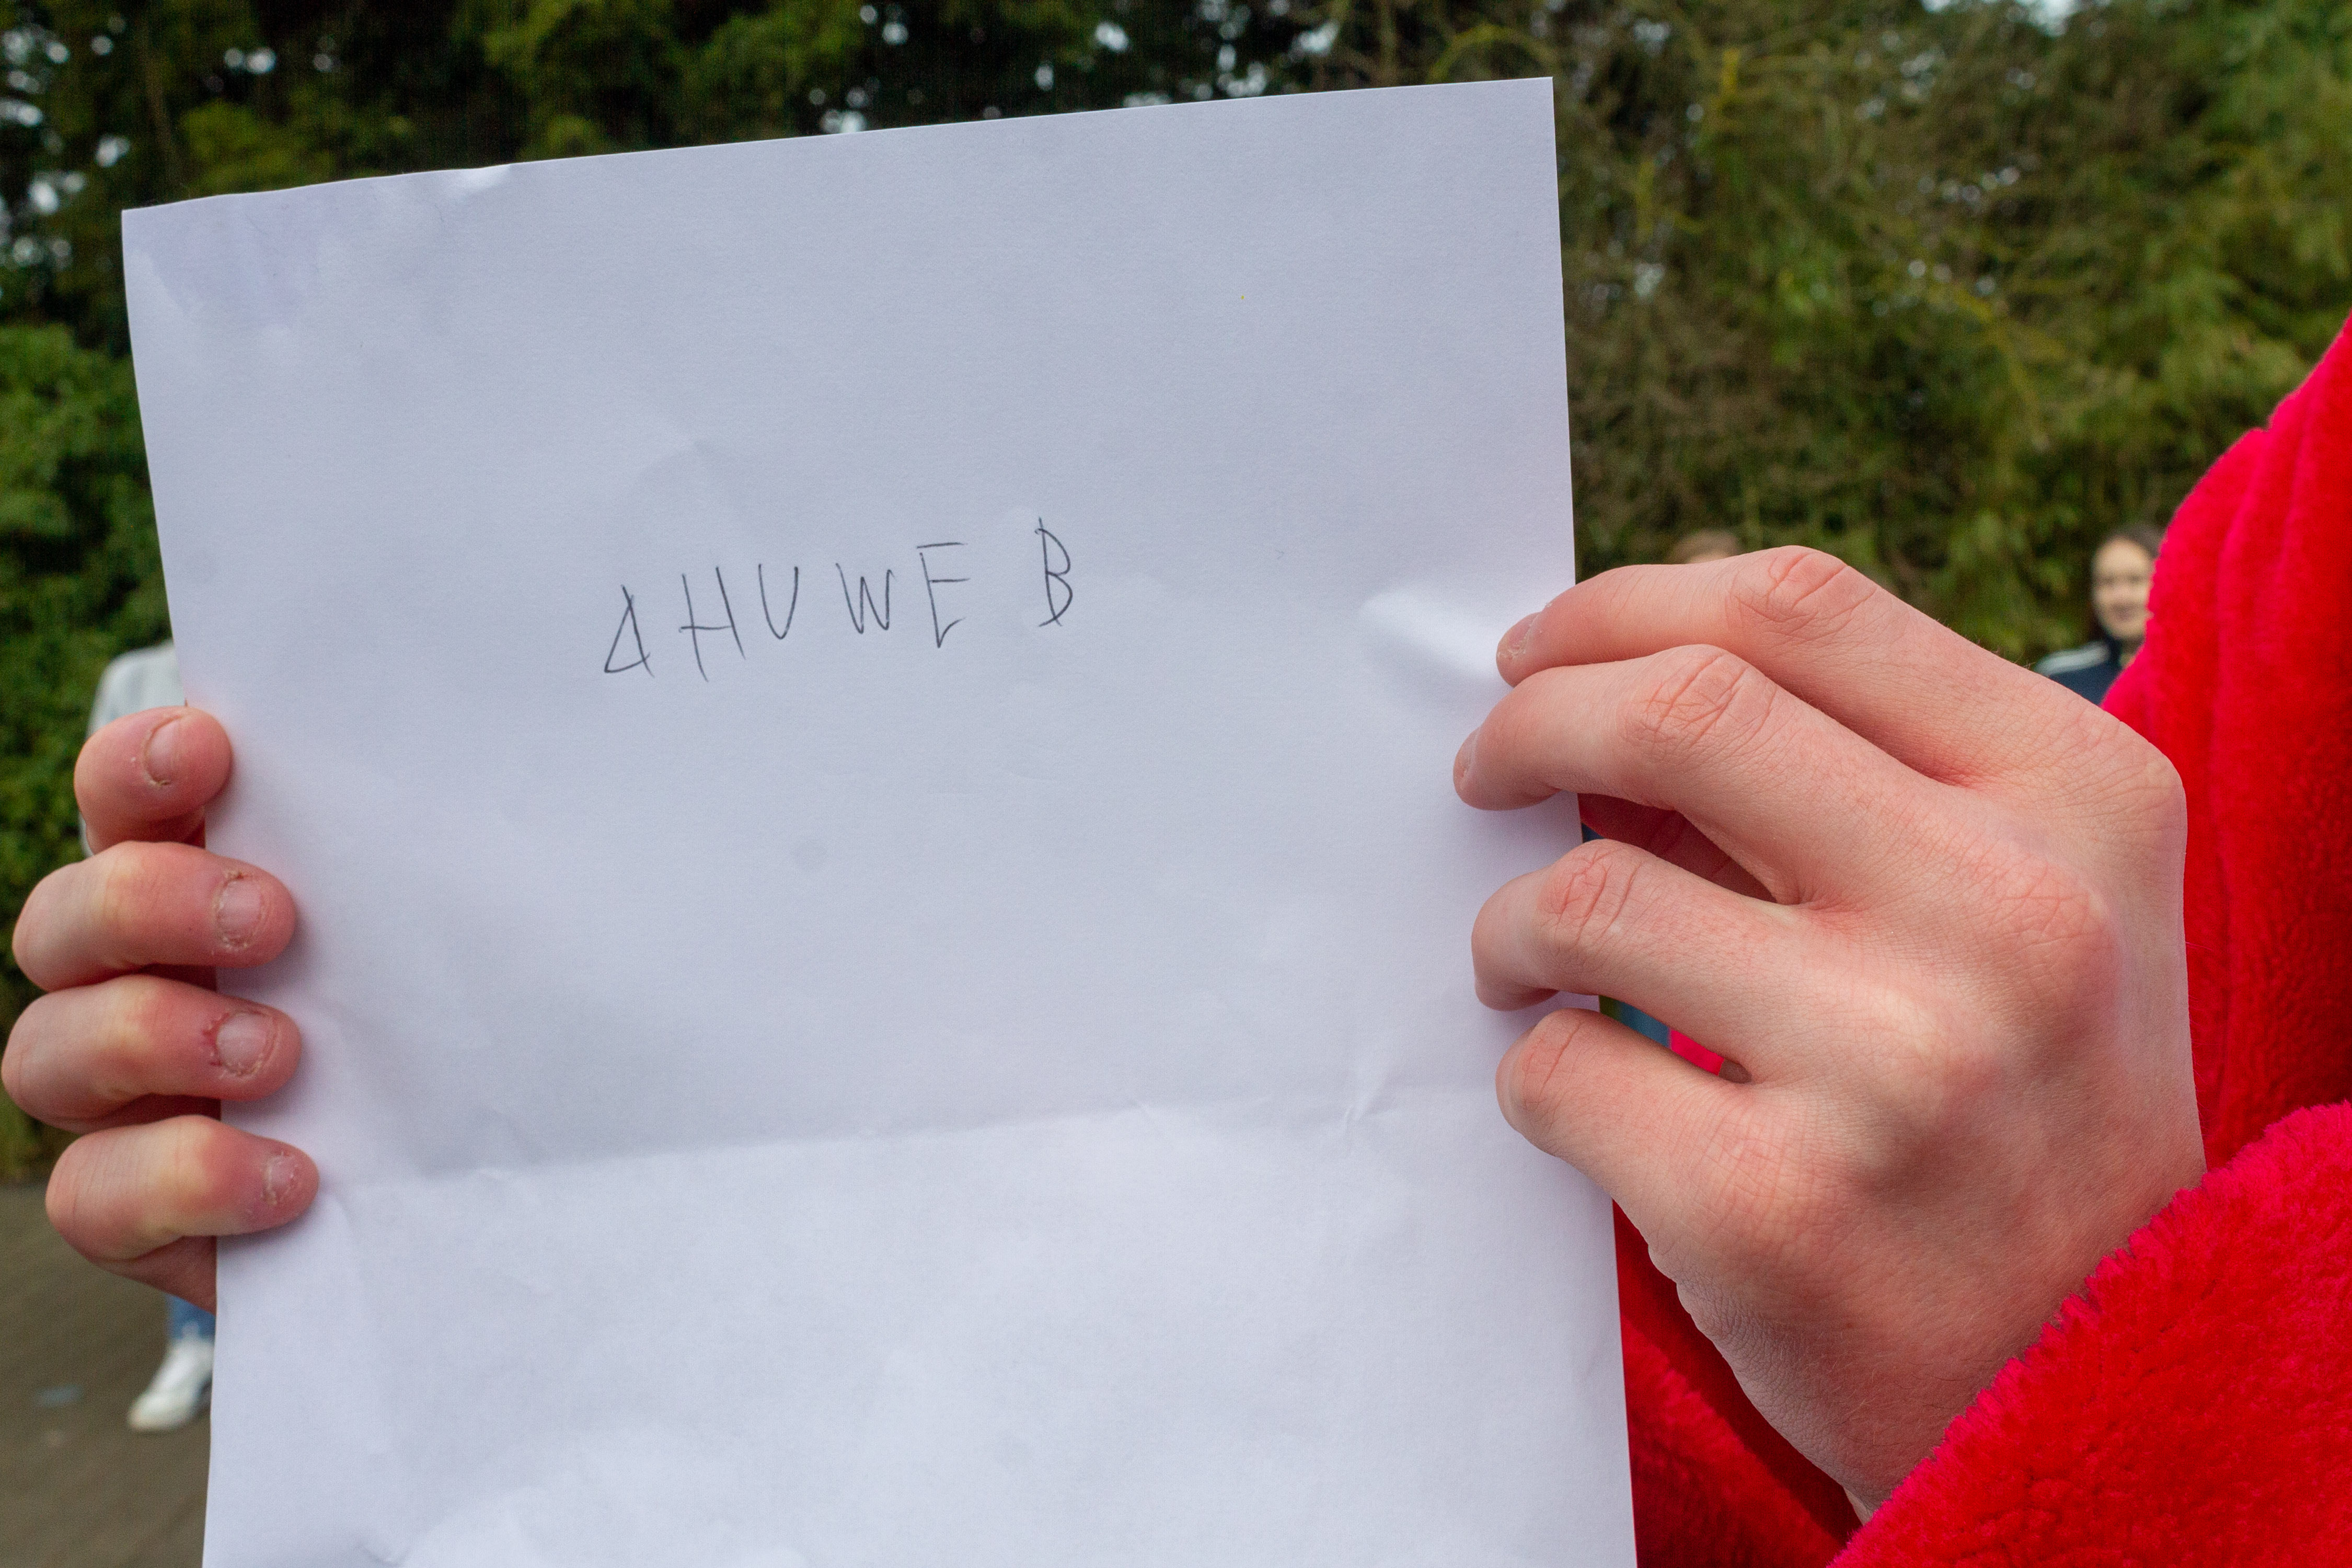 AHUWE B